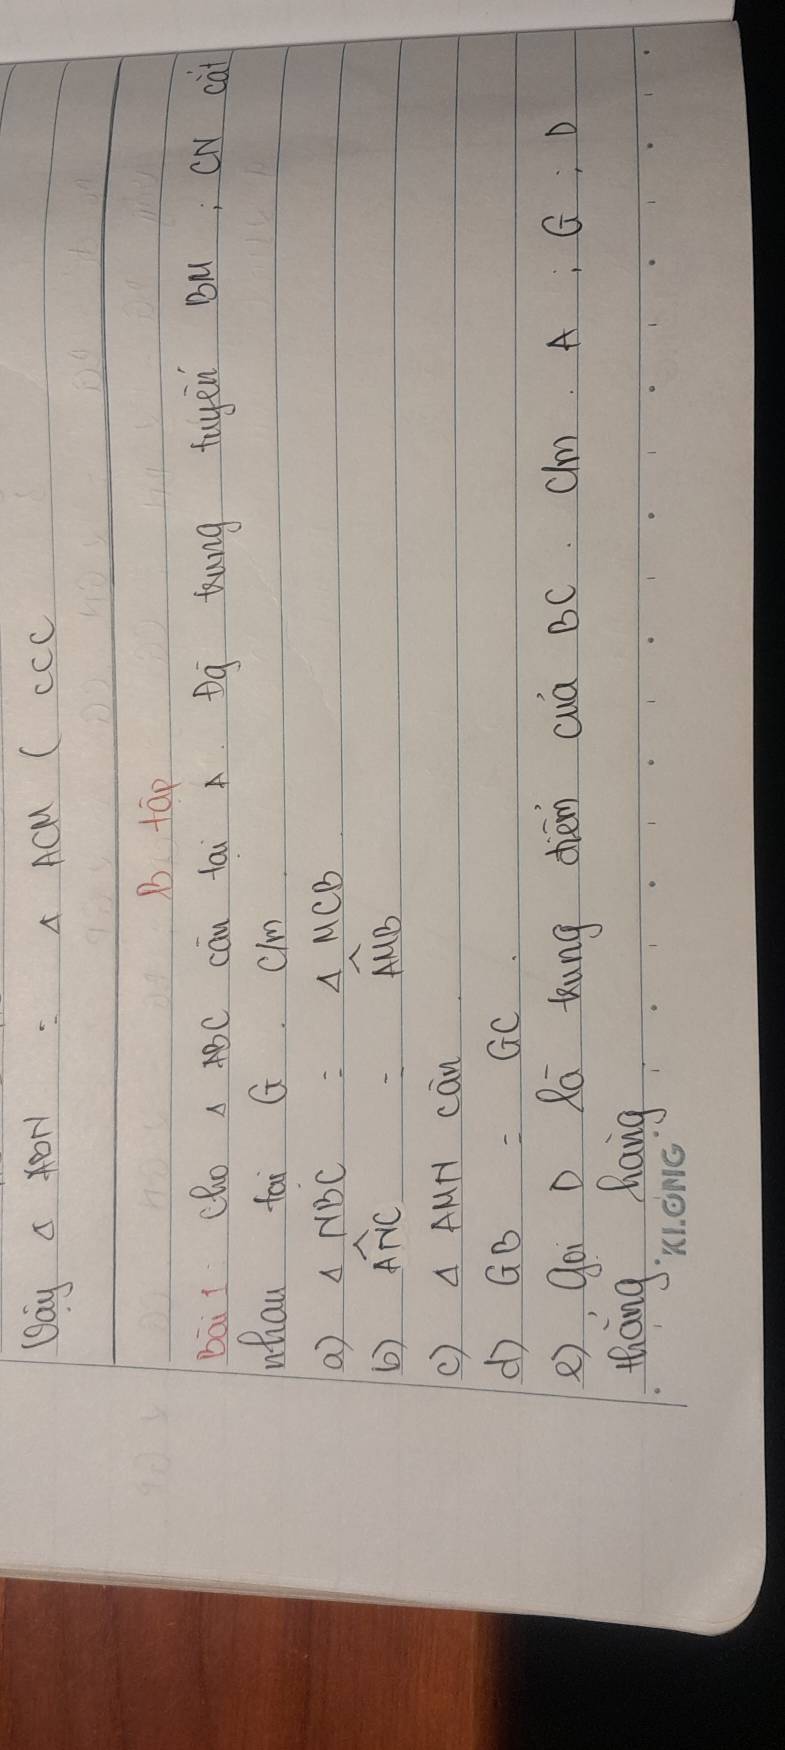 Vậy Δ ABN = Δ ACM ( ccc
B. tập
Bài 1: Cho Δ ABC cân tại A. Đg trung tuyến BM ; CN cắt
nhau tại G. C/m
a) Δ NBC = Δ MCB
b) ANC = AMB
c) Δ AMN cân
d) GB = GC.
e) Gọi D là trung điểm của BC. C/m. A ; G ; D
thẳng hàng
KLONG